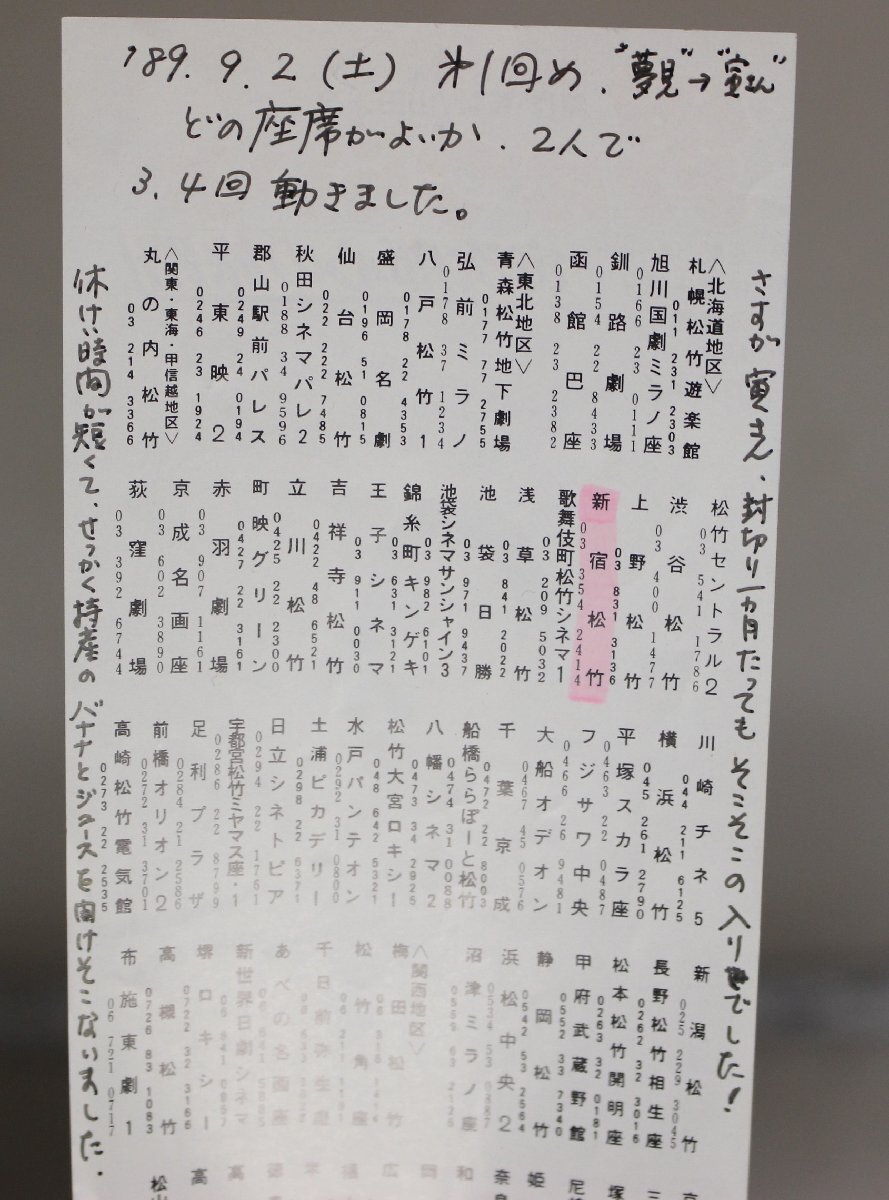 '89. 9. 2 (土) 第1回め. "夢見"→"寅さん"
どの座席がよいか. 2人で
3. 4回動きました。
さすが寅さん、封切り一カ月たってもそこそこの入りでした!
〈北海道地区〉
札幌松竹遊楽館
011 231 2303
旭川国劇ミラノ座
0166 23 0111
釧路劇場
0154 22 8433
函館巴座
0138 23 2382
〈東北地区〉
青森松竹地下劇場
0177 77 2755
弘前ミラノ
0178 37 1234
八戸松竹1
0178 22 4353
盛岡名劇
0196 51 0815
仙台松竹
022 222 7485
秋田シネマパレ2
0188 34 9596
郡山駅前パレス
0249 24 0194
平東映2
0246 23 1924
〈関東・東海・甲信越地区〉
丸の内松竹
03 214 3366
松竹セントラル2
03 541 1786
渋谷松竹
03 400 1477
上野松竹
03 831 3136
新宿松竹
03 354 2414
歌舞伎町松竹シネマ1
03 209 5032
浅草松竹
03 841 2022
池袋日勝
03 971 9437
池袋シネマサンシャイン3
03 982 6101
錦糸町キンゲキ
03 631 3121
王子シネマ
03 911 0030
吉祥寺松竹
0422 48 6521
立川松竹
0425 22 2300
町映グリーン
0427 22 3161
赤羽劇場
03 907 1161
京成名画座
03 602 3890
荻窪劇場
03 392 6744
川崎チネ5
044 211 6125
横浜松竹
045 261 2790
平塚スカラ座
0463 22 0487
フジサワ中央
0466 26 9481
大船オデオン
0467 45 0576
千葉京成
0472 22 8003
船橋ららぽーと松竹
0474 31 0088
八幡シネマ2
0473 34 2925
松竹大宮ロキシー
048 642 5321
水戸パンテオン
0292 31 0800
土浦ピカデリー
0298 22 6371
日立シネトピア
0294 22 1761
宇都宮松竹ミヤマス座・1
0286 22 8799
足利プラザ
0284 21 2586
前橋オリオン2
0272 31 3701
高崎松竹電気館
0273 22 2535
新潟松竹
025 229 3045
長野松竹相生座
0262 32 3016
松本松竹開明座
0263 32 0181
甲府武蔵野館
0552 33 7340
静岡松竹
0542 53 2564
浜松中央2
0534 53 0387
沼津ミラノ座
0559 63 2126
〈関西地区〉
梅田松竹
松竹角座
06 211
千日前弥生座
あべの名画座
新世界日劇シネマ
06 641 0957
堺ロキシー
0722 32 3166
高槻松竹
0726 83 1083
布施東劇1
06 721 0717
休けい時間が短くて、せっかく持産のバナナとジュースを開けそこないました.